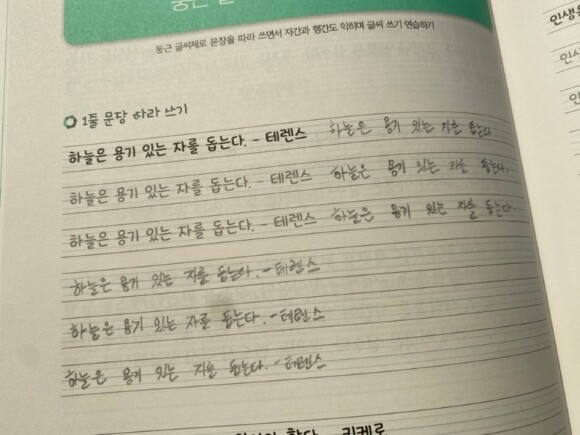 둥근 글씨체로 문장을 따라 쓰면서 자간과 행간도 익히며 글씨 쓰기 연습하기
1줄 문장 따라 쓰기
하늘은 용기 있는 자를 돕는다. - 테렌스 하늘은 용기 있는 자를 돕는다.
하늘은 용기 있는 자를 돕는다. - 테렌스 하늘은 용기 있는 자를 돕는다.
하늘은 용기 있는 자를 돕는다. - 테렌스 하늘은 용기 있는 자를 돕는다.
하늘은 용기 있는 자를 돕는다. - 테렌스
하늘은 용기 있는 자를 돕는다. - 테렌스
하늘은 용기 있는 자를 돕는다. - 테렌스
키케로
인생을
인생